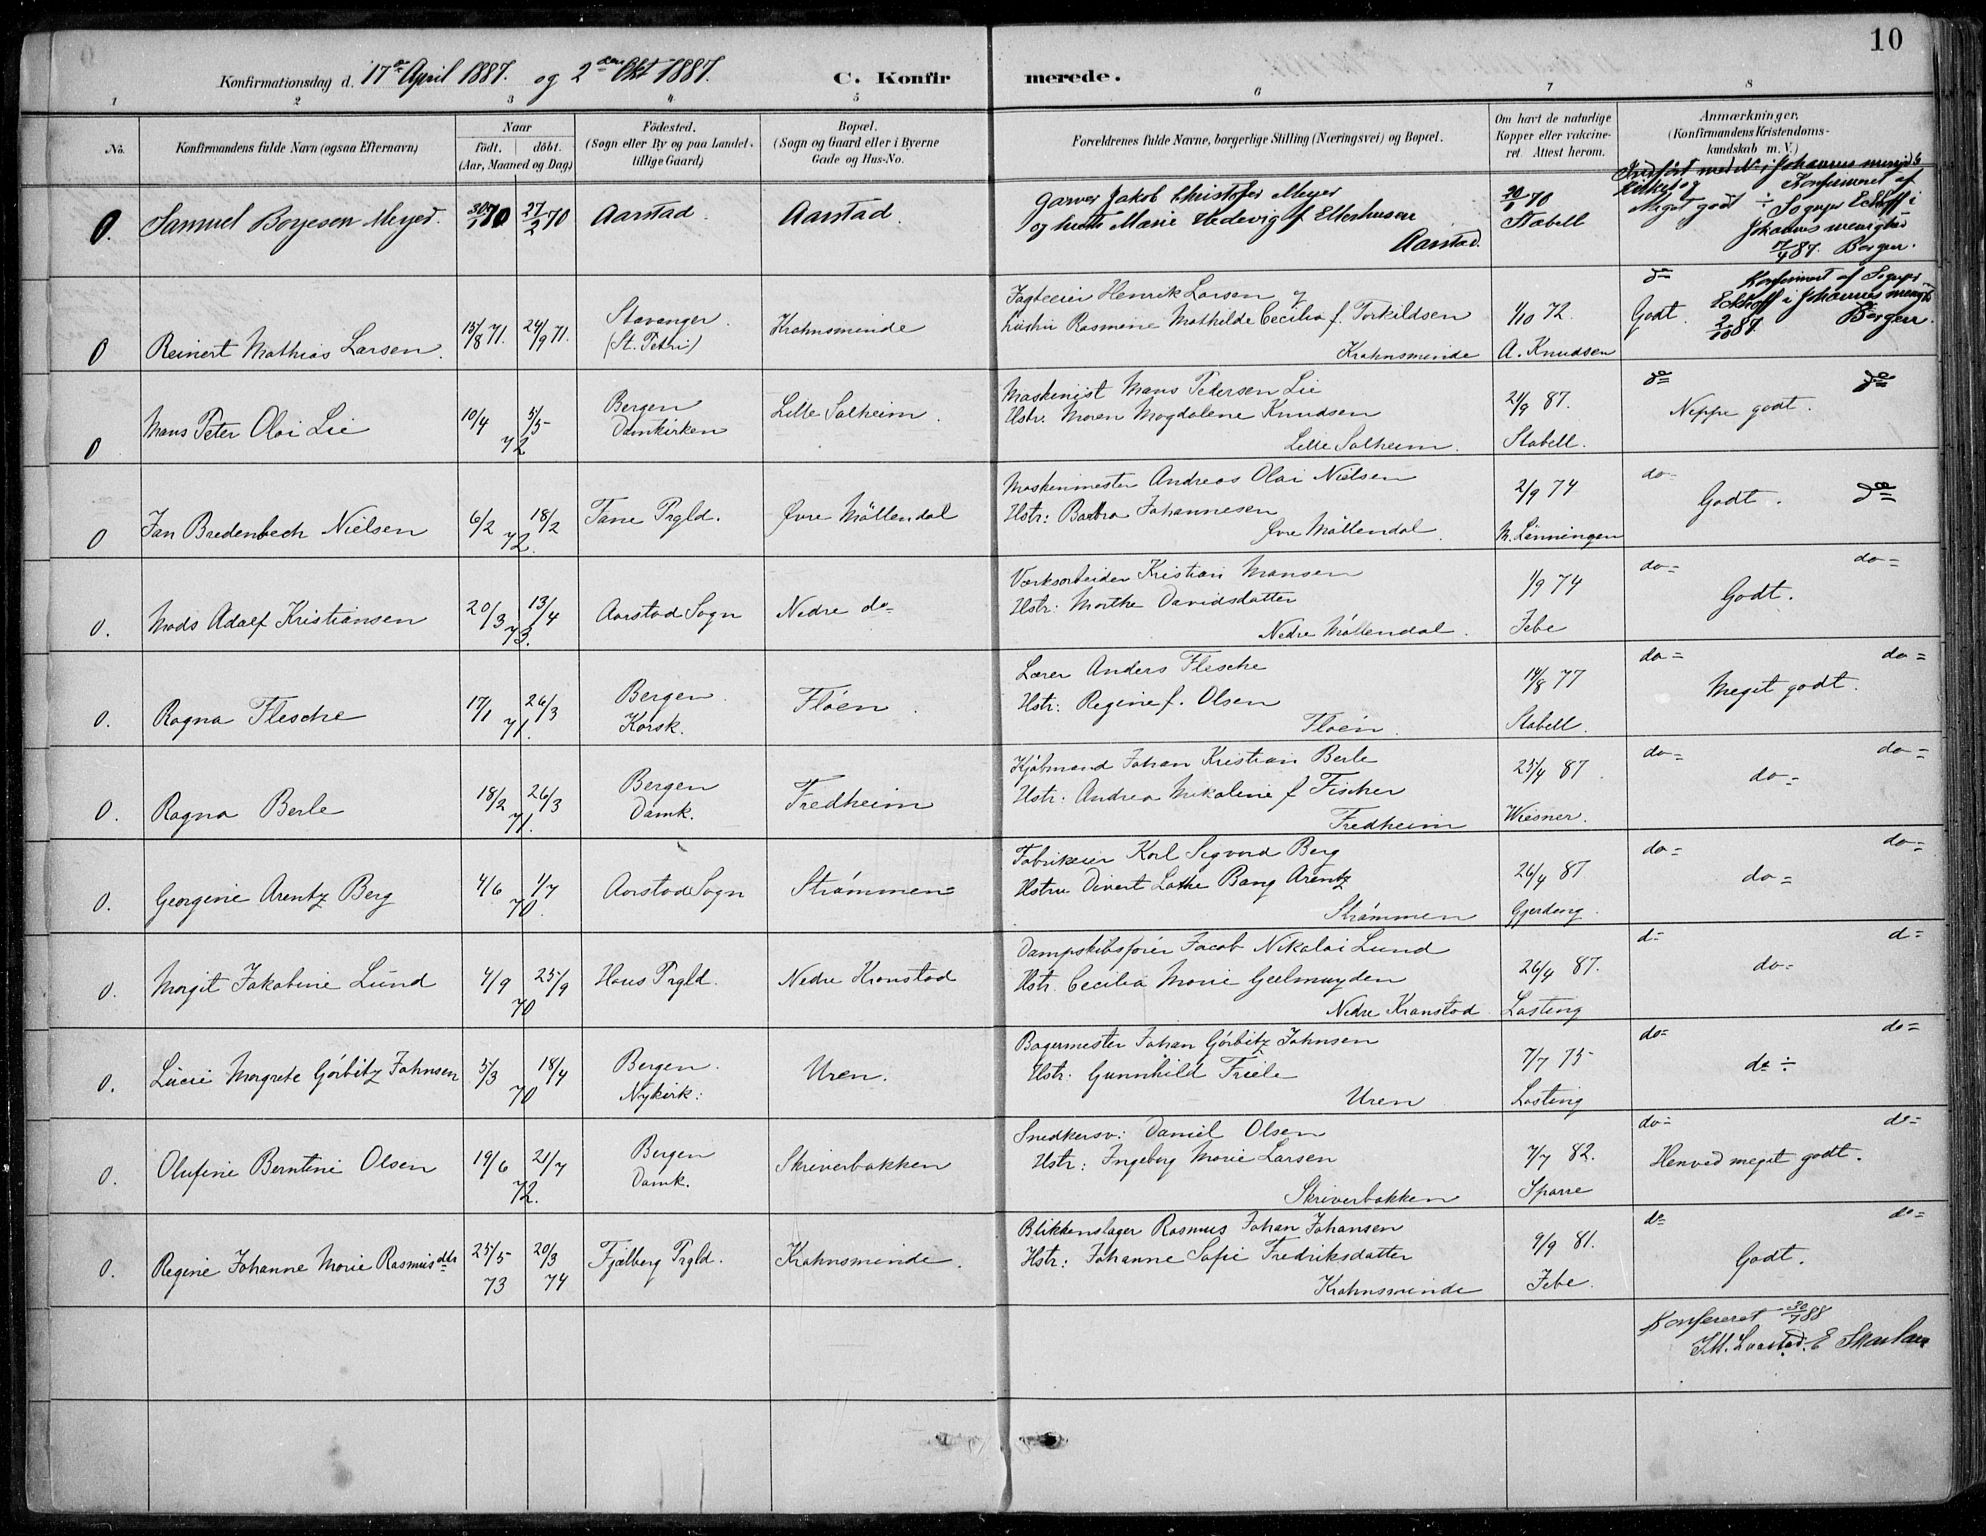 10
Konfirmationsdag d. 17de April 1887. og 2den Okt 1887. C. Konfirmerede.
1 2 3 4 5 6 7 8
No.
Konfirmandens fulde Navn (ogsaa Efternavn)
Naar
födt. döbt.
(Aar, Maaned og Dag)
Födested.
(Sogn eller By og paa Landet tillige Gaard)
Bopæl.
(Sogn og Gaard eller i Byerne Gade og Hus-No.
Forældrenes fulde Navne, borgerlige Stilling (Næringsvei) og Bopæl.
Om havt de naturlige Kopper eller vaccineret. Attest herom.
Anmærkninger,
(Konfirmandens Kristendomskundskab m. V.)
0. Samuel Meyer 30/1 70 27/2 70 Aarstad. Aarstad.
Garver Jakob Christofer Meyer
og Marie Hedevig f
Aarstad.
70
Stabell
i Johannes
Konfirmeret af
Meget godt ÷ Sognepr Eckhoff i
Johannes menighed
17/4 87. Bergen.
0 Reinert Mathias Larsen. 15/8 71. 24/9 71. Stavanger. (St. Petri) Krohnsminde
Jagteeier Henrik Larsen og
Hustru Rasmine Mathilde Cecilia f. Torkildsen
Krohnsminde
1/10 72.
A. Knudsen
do Konfirmert af Sognepr
Godt. Eckhoff i Johannes menigh
2/10 87 Bergen.
0 Mons Peter Olai Lie 10/4 5/5 72 Bergen Domkirken Lille Solheim.
Maskinist Mons Pedersen Lie
Hstr. Maren Magdalene Knudsen
Lille Solheim.
21/9 87.
Stabell.
do Neppe godt. do
0 Jan Bredenbech Nielsen 6/2 18/2 72. Fane Prgld. Øvre Möllendal
Maskinmester Andreas Olai Nielsen
Hstr: Barbra Johannesen
Øvre Möllendal.
2/9 74
M. Lönningen
do Godt. do
0. Mads Adolf Kristiansen 20/3 13/4 73. Aarstad Sogn Nedre do
Værksarbeider Kristian Mansen
Hstr: Marthe Davidsdatter
Nedre Möllendal.
1/9 74
Jebe
do= Godt. do=
0. Ragna Flesche 17/1 26/3 71. Bergen. Korsk. Flöen.
Lærer Anders Flesche
Hstr: Regine f. Olsen
Flöen.
14/8 77
Stabell.
do= Meget godt. do=
0. Ragna Berle 18/2 26/3 71. Bergen Domk. Fredheim
Kjöbmand Johan Kristian Berle
Hstr: Andrea Nikoline f Fischer
Fredheim
25/4 87.
Wiesner.
do= do= do=
0. Georgine Arentz Berg 4/6 1/7 70. Aarstad Sogn Strömmen=
Fabrikeier Karl Sigvard Berg
Hstru Divert Lothe Bang Arentz
Strömmen
26/4 87.
Gjerding.
do= do= do=
0. Margit Jakobine Lund 4/9 25/9 70 Hous Prgld. Nedre Kronstad
Dampskibsförer Jacob Nikolai Lund
Hstr. Cecilia Marie Geelmuyden
Nedre Kronstad
26/4 87.
Lasting
d= do= d=
0. Lucie Margrete Görbitz Johnsen 5/3 18/4 70 Bergen. Nykirk: Uren.
Bagermester Johan Görbitz Johnsen
Hstr: Gunnhild Friele
Uren
7/7 75
Lasting
do= do ÷ do=
0. Olufine Berntine Olsen 19/6 21/7 72. Bergen Domk. Skriverbakken
Snedkersv: Daniel Olsen
Hstr: Ingeborg Marie Larsen
Skriverbakken
7/7 82.
Sparre
do= Henved meget godt. do=
0. Regine Johanne Marie Rasmusdtr 25/5 73 20/3 74 Fjælberg Prgld. Krohnsminde.
Blikkenslager Rasmus Johan Johansen
Hstr: Johanne Sofie Fredriksdatter
Krohnsminde
9/9 81.
Jebe.
do Godt. do=
Konfereret 30/7 88